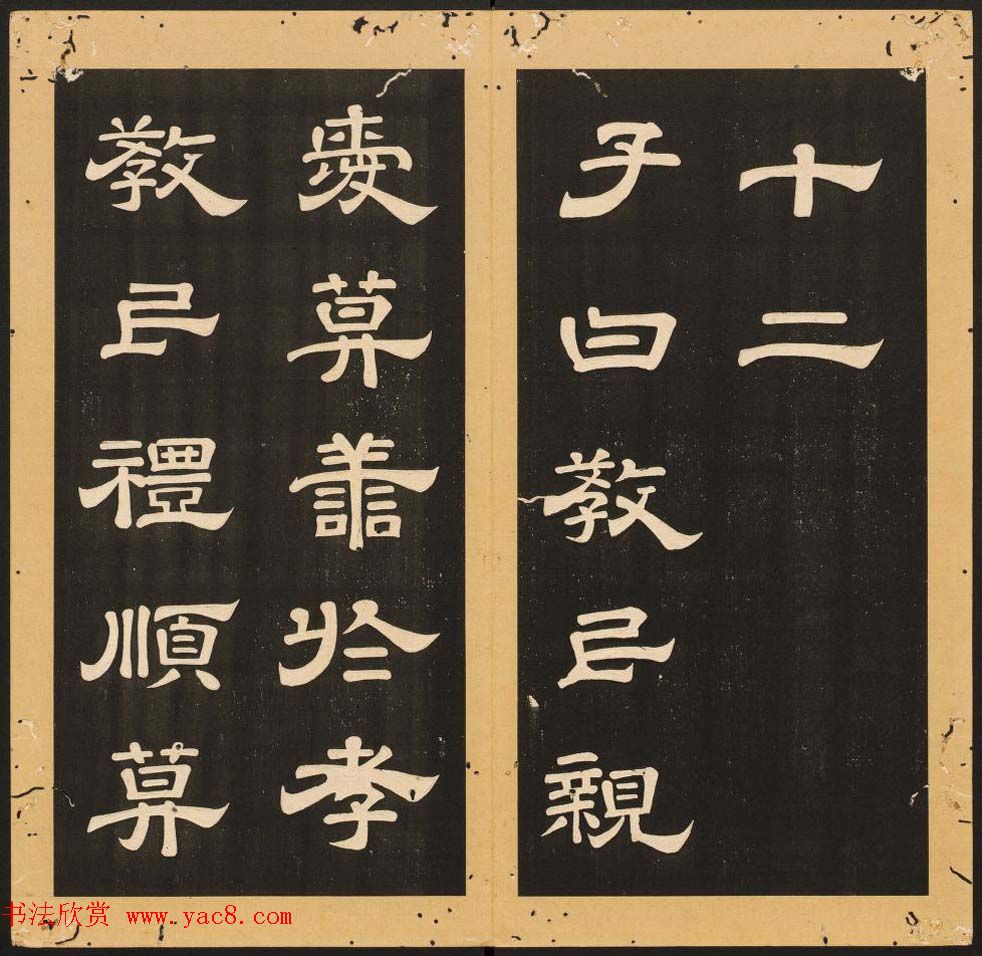 十二
子曰教民親
愛莫善於孝
教民禮順莫
书法欣赏 www.yac8.com